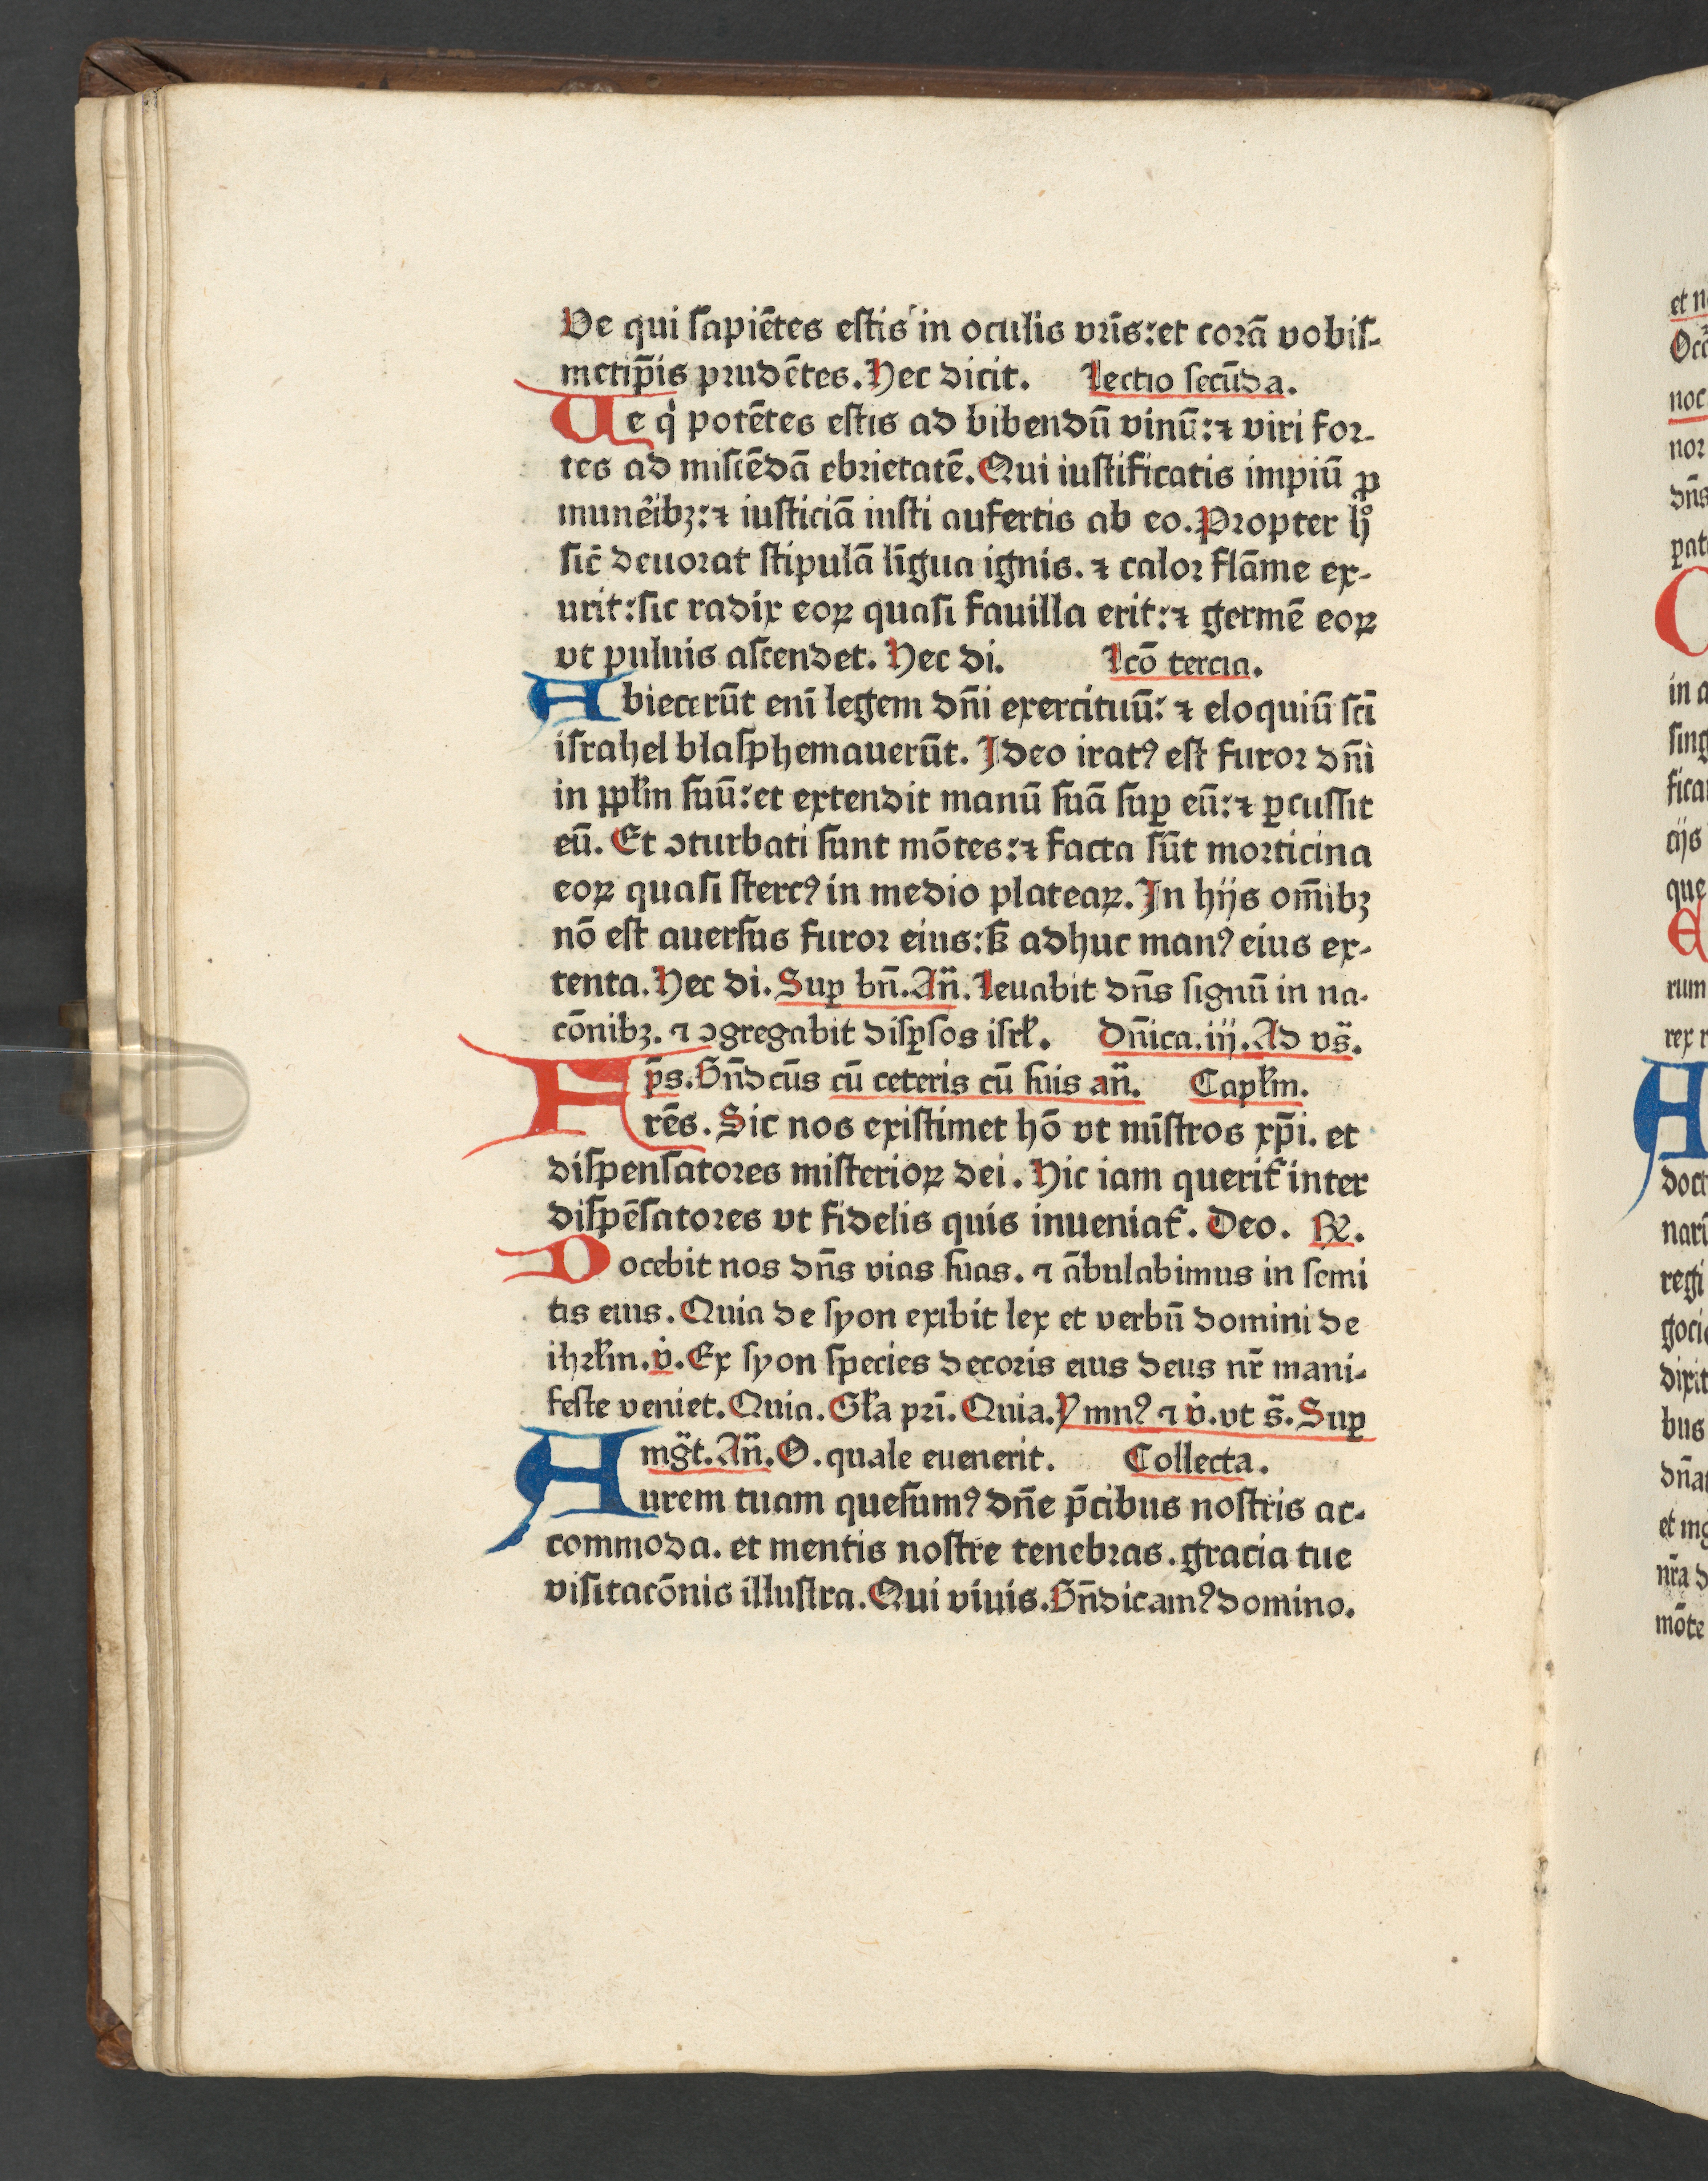 Ve qui sapiētes estis in oculis vr̄is: et corā vobis-
metip̄is prudētes. Hec dicit. Lectio secūda.
Ue qͥ potētes estis ad bibendū vinū: ⁊ viri for-
tes ad miscēdā ebrietatē. Qui iustificatis impiū ꝓ
munēibꝫ: ⁊ iusticiā iusti aufertis ab eo. Propter hͦ
sic̄ deuorat stipulā līgua ignis. ⁊ calor flāme ex-
urit: sic radix eoꝝ quasi fauilla erit: ⁊ germē eoꝝ
vt puluis ascendet. Hec di. Lcō tercia.
Abiecerūt enī legem dn̄i exercituū: ⁊ eloquiū scī
israhel blasphemauerūt. Ideo iratꝰ est furor dn̄i
in ppl̄m suū: et extendit manū suā suꝑ eū: ⁊ ꝑcussit
eū. Et ↄturbati sunt mōtes: ⁊ facta sūt morticina
eoꝝ quasi stercꝰ in medio plateaꝝ. In hijs om̄ibꝫ
nō est auersus furor eius: sꝫ adhuc manꝰ eius ex-
tenta. Hec di. Suꝑ bn̄. An̄. Leuabit dn̄s signū in na-
cōnibꝫ. ⁊ ↄgregabit disꝑsos isrl̄. Dn̄ica. iij. Ad vs̄.
p̄s. Bn̄dcūs cū ceteris cū suis an̄. Capl̄m.
Frēs. Sic nos existimet hō vt mīstros xp̄i. et
dispensatores misterioꝝ dei. Hic iam querit̄ inter
dispēsatores vt fidelis quis inueniat̄. Deo. ℞.
Docebit nos dn̄s vias suas. ⁊ ābulabimus in semi
tis eius. Quia de syon exibit lex et verbū domini de
ihrl̄m. v̇. Ex syon species decoris eius deus nr̄ mani-
feste veniet. Quia. Gl̄a pri̅. Quia. Ymnꝰ ⁊ v̇. vt s̄. Suꝑ
mḡt. An̄. O. quale euenerit. Collecta.
Aurem tuam quesumꝰ dn̄e p̄cibus nostris ac-
commoda. et mentis nostre tenebras. gracia tue
visitacōnis illustra. Qui viuis. Bn̄dicamꝰ domino.